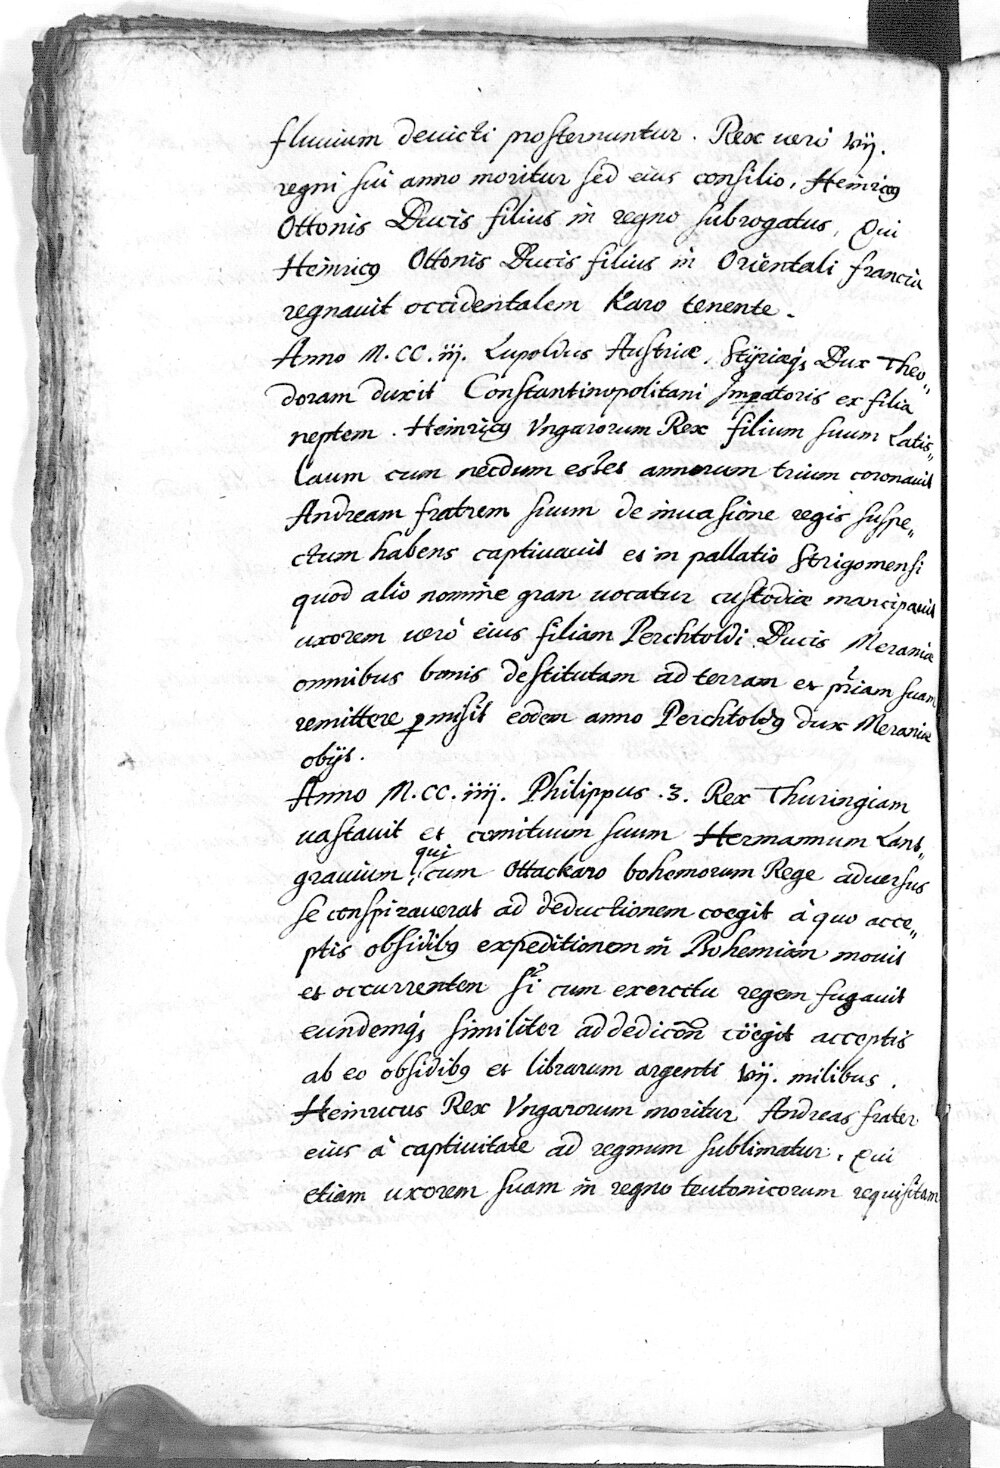 fluuium deuicti prosternuntur. Rex uerò vij.
regni sui anno moritur sed eius consilio, Heinricꝰ
Ottonis Ducis filius in regno subrogatus, Qui
Heinricꝰ Ottonis Ducis filius in Orientali francia
regnauit occidentalem Karo tenente.
Anno M.CC.iij. Lupoldus Austriæ, Stÿriæq; Dux Theo„
doram duxit Constantinopolitani Imꝑatoris ex filia
neptem. Heinricꝰ Vngarorum Rex filium suum Latis„
laum cum necdum esset annorum trium coronauit
Andream fratrem suum de inuasione regis suspe„
ctum habens captiuauit et in pallatio Strigomensi
quod alio nomine gran uocatur custodiæ mancipauit
uxorem uerò eius filiam Perchtoldi Ducis Meraniæ
omnibus bonis destitutam ad terram et pr̃iam suam
remittere ꝑmisit eodem anno Perchtoldꝰ dux Meraniæ
obijt.
Anno M.CC.iiij. Philippus .3. Rex Thuringiam
uastauit et comituum suum Hermannum Lant„
grauium, qui cum Ottackaro bohemorum Rege aduersus
se conspirauerat ad deductionem coegit à quo acce„
ptis obsidibꝰ expeditionem in Bohemiam mouit
et occurrentem si cum exercitu regem fugauit
eundemq; similiter ad dedicõn cöegit acceptis
ab eo obsidibꝰ et librarum argenti vij. milibus.
Heinricus Rex Vngarorum moritur Andreas frater
eius à captiuitate ad regnum sublimatur, Qui
etiam uxorem suam in regno teutonicorum requisitam